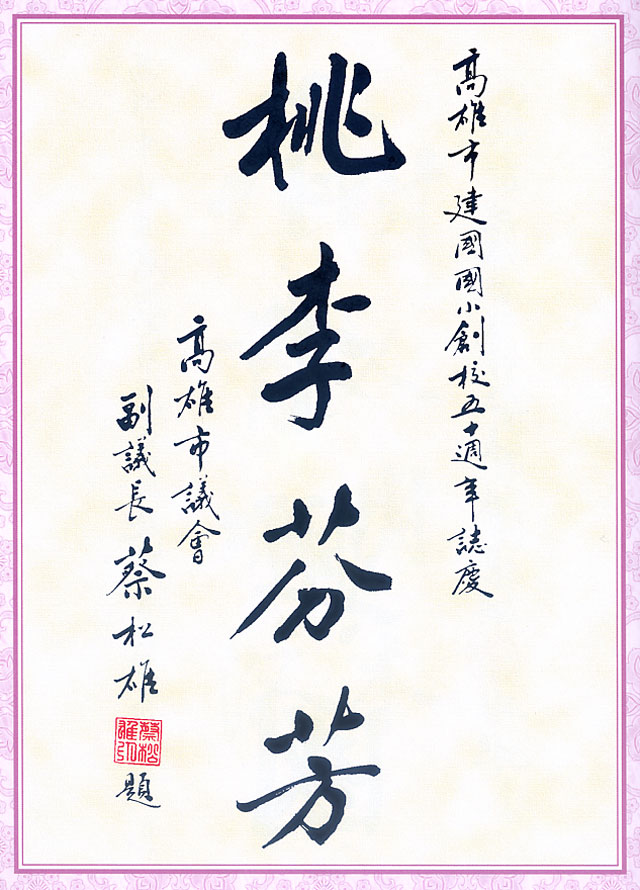 高雄市建國國小創校五十週年誌慶
桃李芬芳
高雄市議會
副議長 蔡松雄 題
蔡松雄印